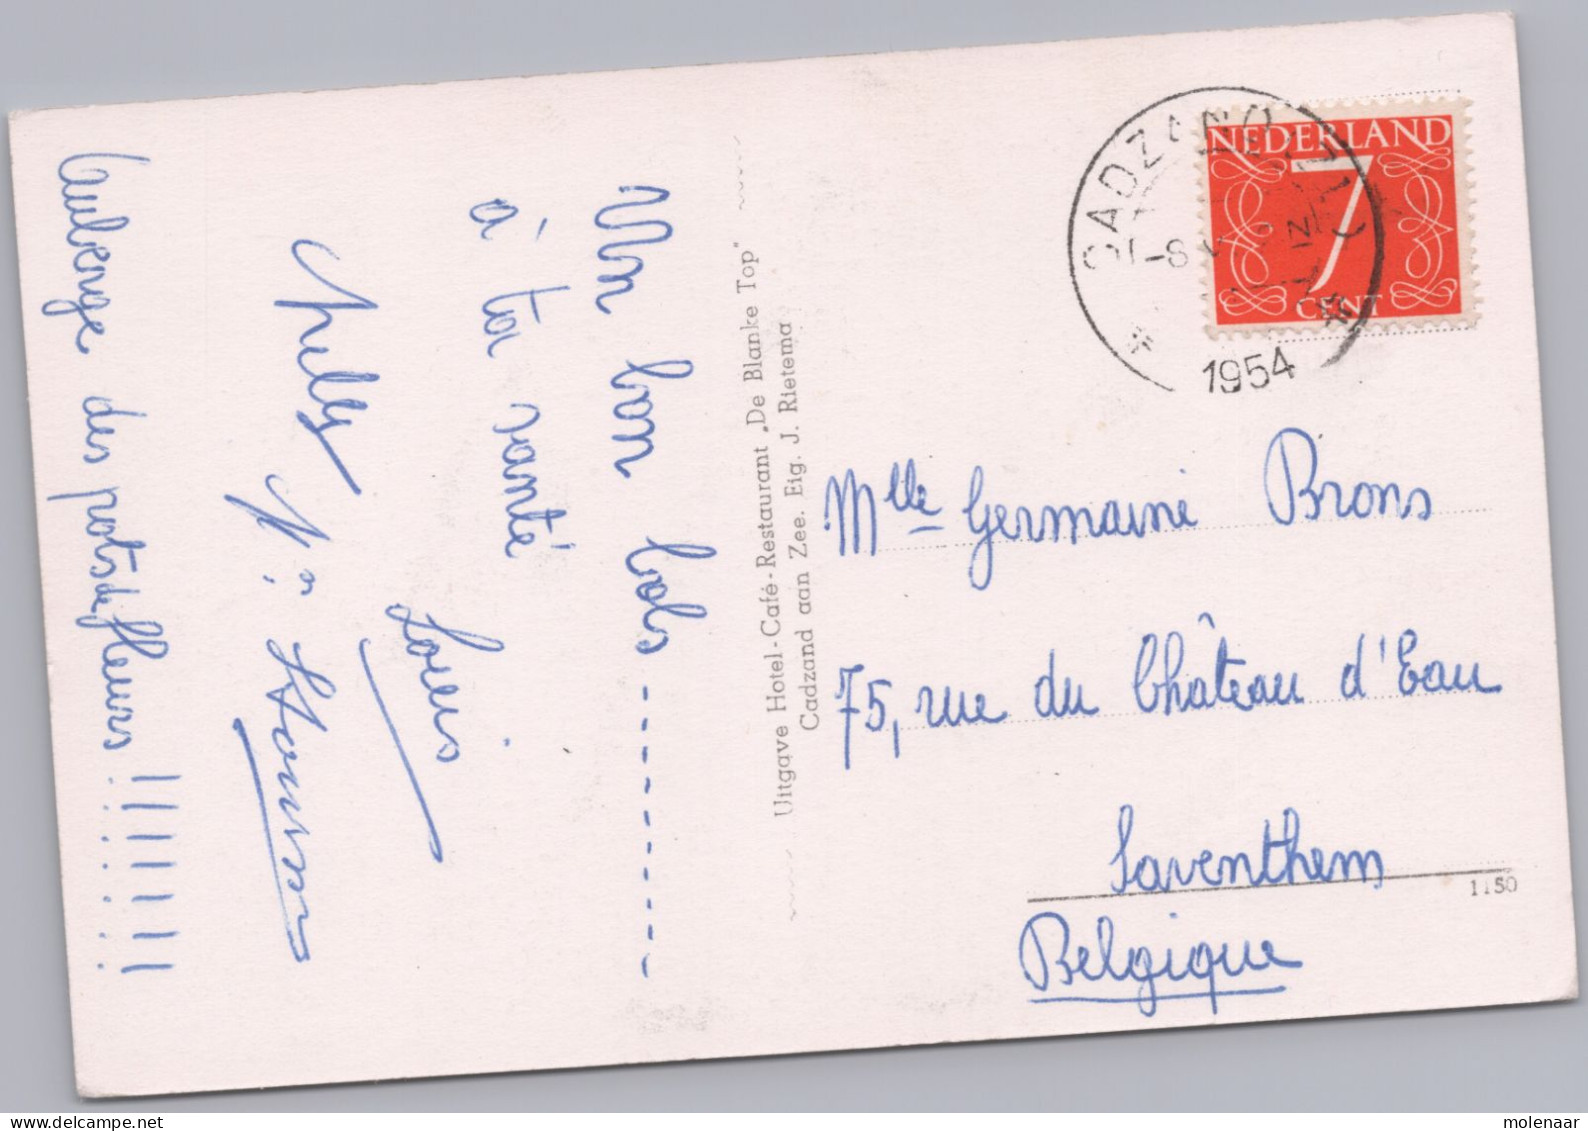 Un bon bols
à ta santé
Louis
Nelly
Auberge des pots de fleurs !!!!!!!
Uitgave Hotel-Café-Restaurant „De Blanke Top"
Cadzand aan Zee. Eig. J. Rietema
CADZAND
NEDERLAND
7
CENT
1954
Mlle Germaine Brons
75, rue du Château d'Eau
Saventhem
1150
Belgique
www.delcampe.net
molenaar